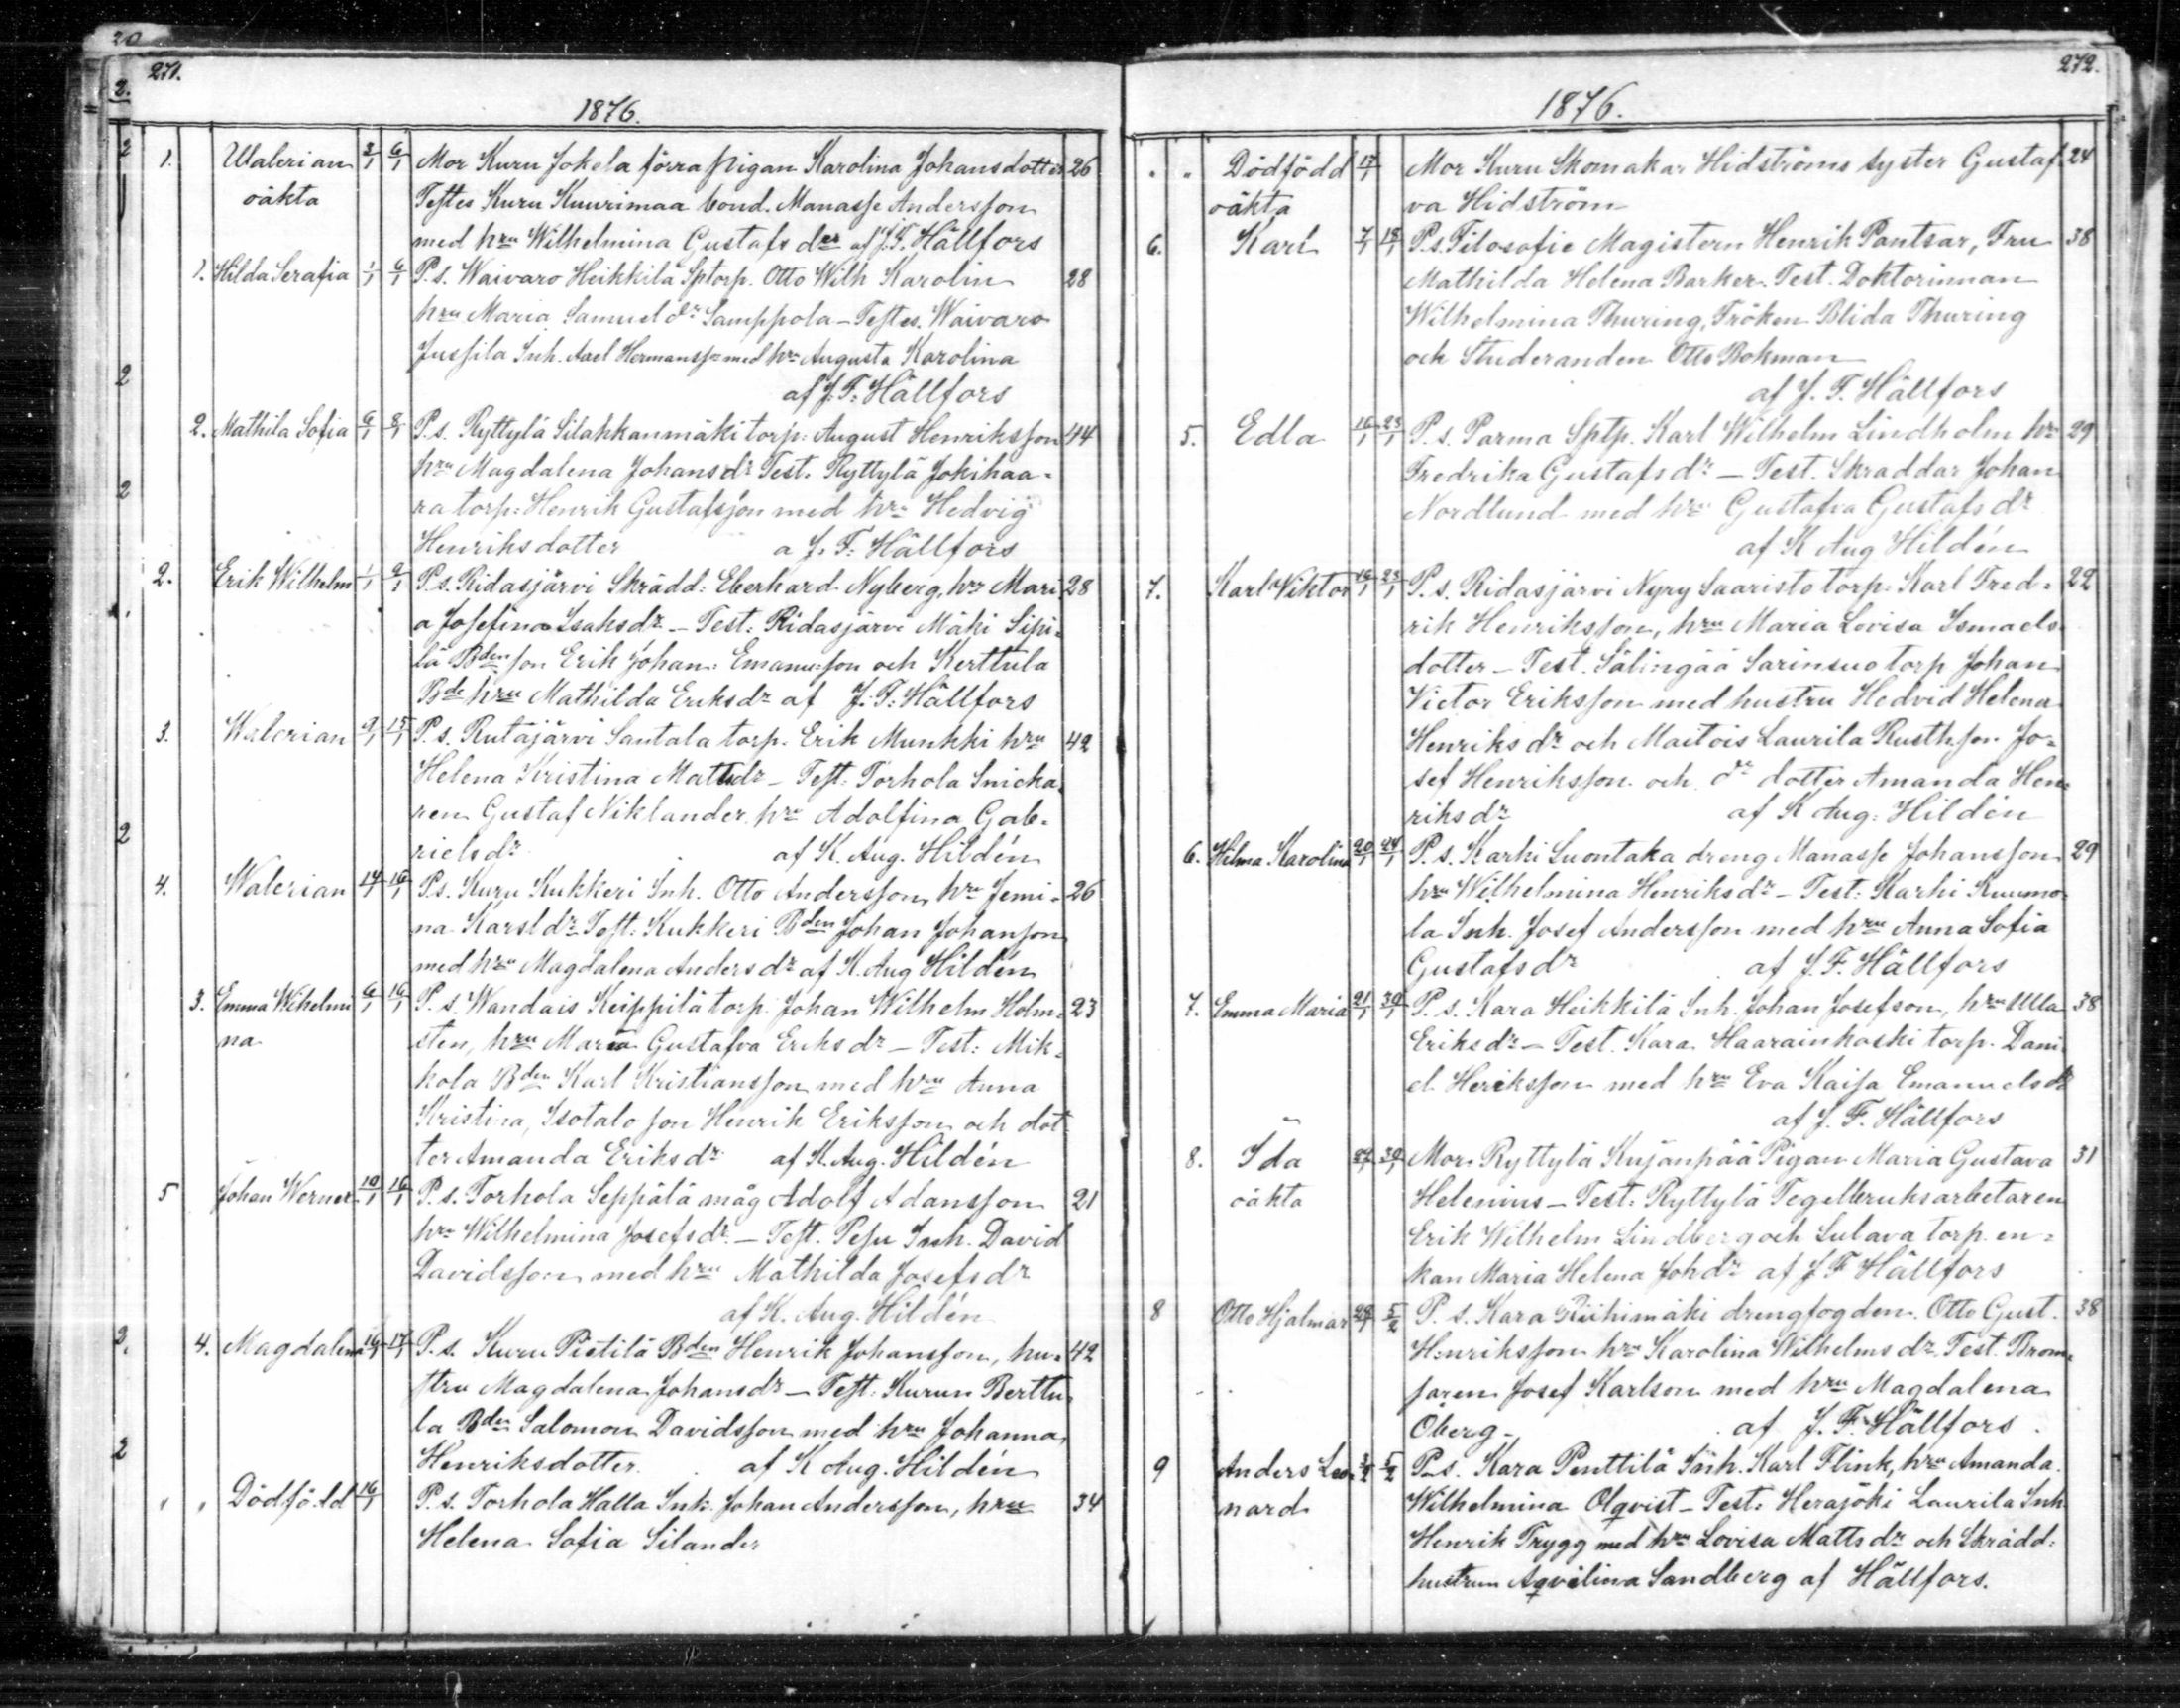 20
271.
2.
1876.
2 1. Walerian 3/1 6/1 Mor Kuru Jokela förra pigan Karolina Johansdotter 26
oäkta Testes Kuru Kuurimaa bond. Manasse Andersson
med hru Wilhelmina Gustafs der af J. F. Hällfors
1. Hilda Serafia 1/1 6/1 P. s. Waivaro Heikkilä Sptorp. Otto Wilh Karolin 28
hru Maria Samueldr Samppola – Testes. Waivaro
Jussila Inh. Axel Hermanss: med hru Augusta Karolina
2 af J: F: Hällfors
2. Mathila Sofia 6/1 8/1 P. s. Ryttylä Silahkanmäki torp: August Henriksson 44
hru Magdalena Johansdr Test. Ryttylä Jokihaa-
2 ra torp: Henrik Gustafsson med hru Hedvig
Henriksdotter a J. F: Hällfors
2. Erik Wilhelm 1/1 9/1 P. s. Ridasjärvi Skrädd: Eberhard Nyberg, hru Mari 28
a Josefina Isaksdr – Test: Ridasjärvi Mäki Sipi-
lä Bden son Erik Johan: Emanu:son och Kerttula
Bde hru Mathilda Eriksdr af J. F: Hällfors
3. Walerian 9/1 15/1 P. s. Rutajärvi Santala torp. Erik Munkki hru 42
Helena Kristina Mattsdr – Test: Torhola Snicka-
ren Gustaf Niklander hru Adolfina Gab-
2 rielsdr af K. Aug. Hildén
4. Walerian 14/1 16/1 P. s. Kuru Kukkeri Inh. Otto Andersson, hru Jemi- 26
na Karsldr Test: Kukkeri Bden Johan Johanson
med hru Magdalena Andersdr af K. Aug Hildén
3. Emma Wihelmi 6/1 16/1 P. s. Wandais Keippilä torp. Johan Wilhelm Holm- 23
na sten, hru Maria Gustafva Eriksdr – Test: Mik-
kola Bden Karl Kristiansson med hru Anna
Kristina, Isotalo son Henrik Eriksson och dot
ter Amanda Eriksdr af K. Aug. Hildén
5 Johan Werner 10/1 16/1 P. s. Torhola Seppälä måg Adolf Adansson 21
hru Wilhelmina Josefsdr. – Test. Pesu Inh. David
Davidsson med hru Mathilda Josefsdr
af K. Aug. Hildén
2. 4. Magdalena 16/1 17/1 P. s. Kuru Pietilä Bden Henrik Johansson, hu- 42
stru Magdalena Johansdr – Test: Kurun Berttu-
la Bden Salomon Davidsson med hru Johanna
2 Henriksdotter. af K Aug. Hildén
" " Dödfödd 16/1 P. s. Torhola Halla Inh: Johan Andersson, hru 34
Helena Sofia Silander
272.
1876.
" " Dödfödd 17/1 Mor Kuru Skomakar Hidströms syster Gustaf 24
oäkta va Hidström
6. Karl 7/1 18/1 P. s. Filosofie Magistern Henrik Pantsar, Fru 38
Mathilda Helena Barker. Test. Doktorinnan
Wilhelmina Thuring, Fröken Blida Thuring
och Studeranden Otto Bokman
af J. F. Hällfors
5. Edla 16/1 23/1 P. s. Parma Sptp. Karl Wilhelm Lindholm hru 29
Fredrika Gustafsdr – Test. Skraddar Johan
Nordlund med hru Gustafva Gustafsdr
af K Aug Hildén
7. Karl Viktor 16/1 23/1 P. s. Ridasjärvi Nyry Saaristo torp: Karl Fred- 22
rik Henriksson, hru Maria Lovisa Ismaels
dotter – Test. Sälingää Sarinsuo torp Johan
Victor Eriksson med hustru Hedvid Helena
Henriksdr och Maitois Laurila Rusth.son Jo-
sef Henriksson och dr dotter Amanda Hen-
riksdr af K Aug: Hildén
6. Hilma Karolina 20/1 24/1 P. s. Karhi Luontaka dreng Manasse Johansson 29
hru Wilhelmina Henriksdr – Test: Karhi Kuumo-
la Inh. Josef Andersson med hru Anna Sofia
Gustafsdr af J. F. Hällfors
7. Emma Maria 21/1 30/1 P. s. Kara Heikkilä Inh. Johan Josefson, hru Ulla 38
Eriksdr – Test. Kara Haarainkoski torp. Dani
el Heriksson med hru Eva Kaisa Emanuelsdr
af J. F. Hällfors
8. Ida 27/1 30/1 Mor. Ryttylä Kujanpää Pigan Maria Gustava 31
oäkta Helenius – Test: Ryttylä Tegelbruksarbetaren
Erik Wilhelm Lindberg och Sulava torp. en-
kan Maria Helena Johdr af J F Hällfors
8 Otto Hjalmar 28/1 5/2 P. s. Kara Riihimäki drengfogden. Otto Gust. 38
Henriksson hru Karolina Wilhelmsdr. Test. Brom-
saren Josef Karlson med hru Magdalena
Öberg – af J. F. Hällfors.
9 Anders Leo- 3/2 5/2 P. s. Kara Penttilä Inh. Karl Flink, hru Amanda
nard Wilhelmina Olqvist – Test: Herajoki Laurila Inh
Henrik Trygg med hru Lovisa Mattsdr och Skrädd:
hustrun Aqvilina Sandberg af Hällfors.